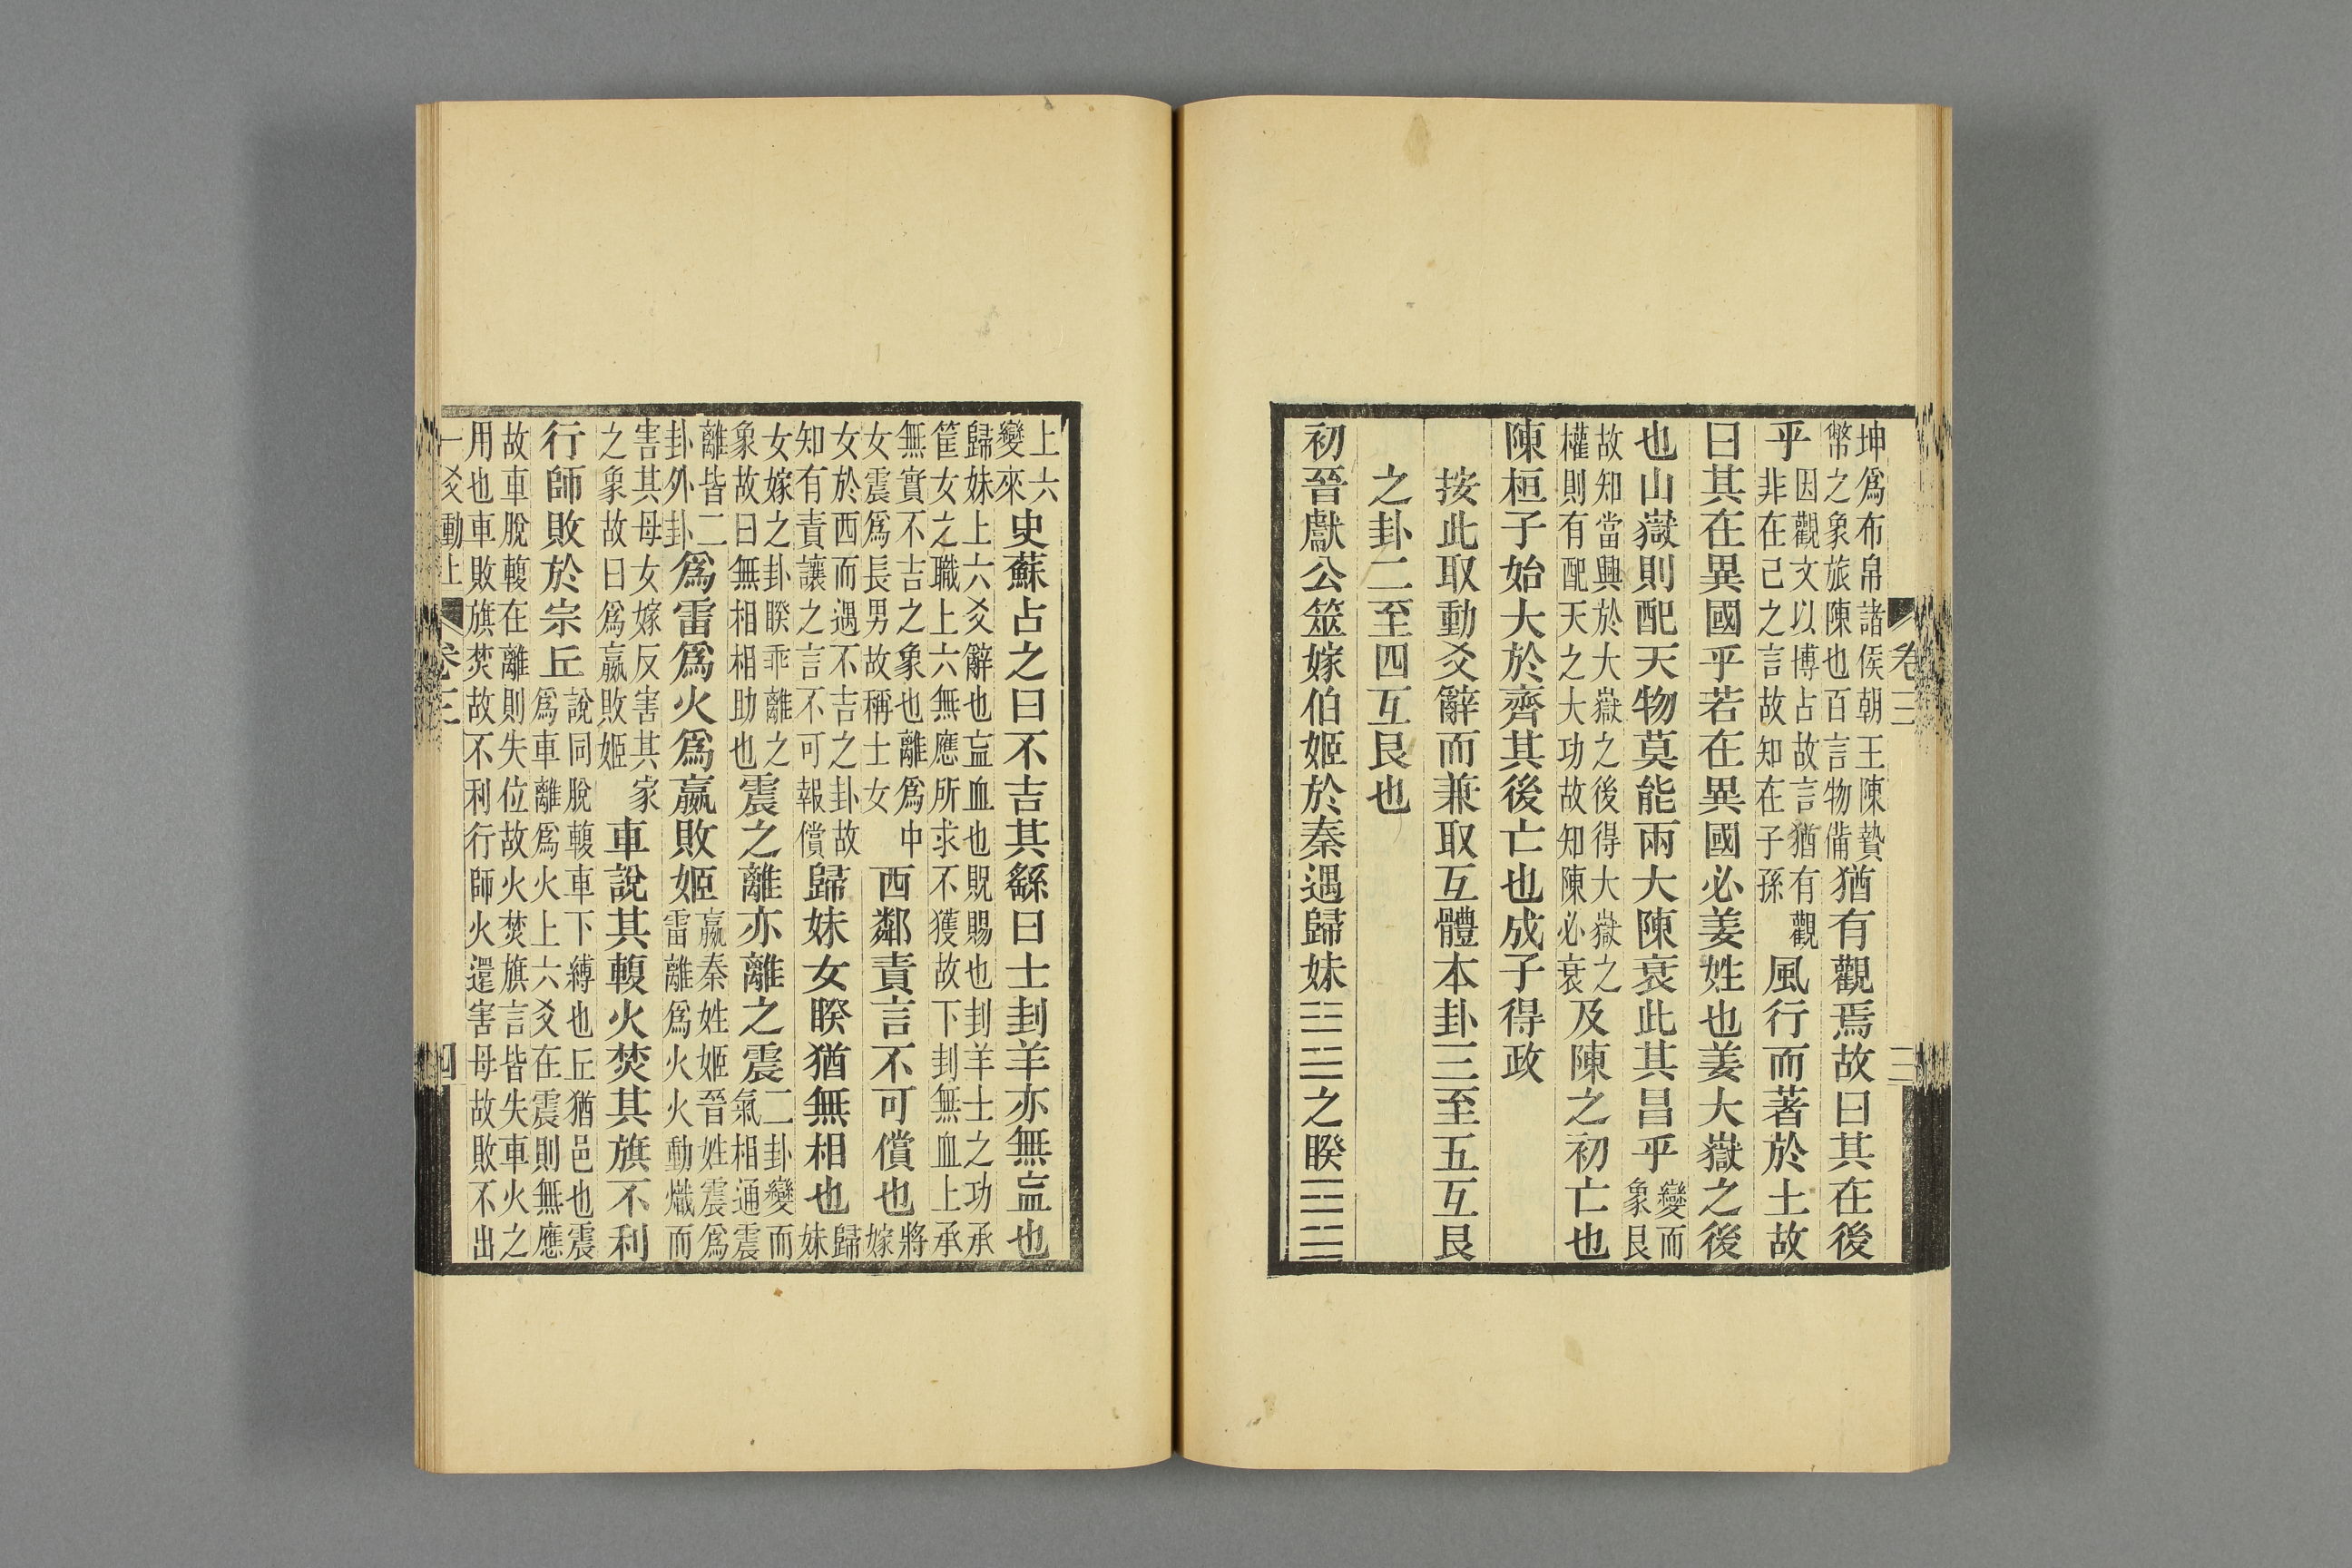 卷三 三
坤爲布帛諸侯朝王陳贄
幣之象旅陳也百言物備
猶有觀焉故曰其在後
乎
因觀文以博占故言猶有觀
非在己之言故知在子孫
風行而著於土故
曰其在異國乎若在異國必姜姓也姜大嶽之後
也山嶽則配天物莫能兩大陳衰此其昌乎
變而
象艮
故知當興於大嶽之後得大嶽之
權則有配天之大功故知陳必衰
及陳之初亡也
陳桓子始大於齊其後亡也成子得政
按此取動爻辭而兼取互體本卦三至五互艮
之卦二至四互艮也
初晉獻公筮嫁伯姬於秦遇歸妹䷵之睽䷥
上六
變來
史蘇占之曰不吉其繇曰士刲羊亦無衁也
歸妹上六爻辭也衁血也貺賜也刲羊士之功承
筐女之職上六無應所求不獲故下刲無血上承
無實不吉之象也離爲中
女震爲長男故稱士女
西鄰責言不可償也
將
嫁
女於西而遇不吉之卦故
知有責讓之言不可報償
歸妹女睽猶無相也
歸
妹
女嫁之卦睽乖離之
象故曰無相相助也
震之離亦離之震
二卦變而
氣相通震
離皆二
卦外卦
爲雷爲火爲嬴敗姬
嬴秦姓姬晉姓震爲
雷離爲火火動熾而
害其母女嫁反害其家
之象故曰爲嬴敗姬
車說其輹火焚其旗不利
行師敗於宗丘
說同脫輹車下縛也丘猶邑也震
爲車離爲火上六爻在震則無應
故車脫輹在離則失位故火焚旗言皆失車火之
用也車敗旗焚故不利行師火還害母故敗不出
卷三 四